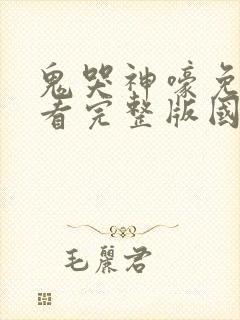 鬼哭神嚎免
看完整版國
毛麗君